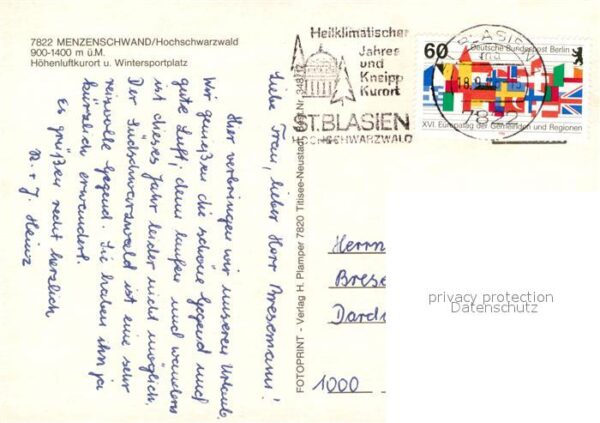 7822 MENZENSCHWAND/Hochschwarzwald
900-1400 m ü.M.
Höhenluftkurort u. Wintersportplatz
Liebe Frau, lieber Herr Bresemann!
Hier verbringen wir unseren Urlaub.
Wir genießen die schöne Gegend und
gute Luft, denn laufen und wandern
ist dieses Jahr leider nicht möglich.
Der Südschwarzwald ist eine sehr
reizvolle Gegend. Sie haben ihn ja
kürzlich erwandert.
Es grüßen recht herzlich
u. J. Heinz
FOTOPRINT - Verlag H. Plamper 7820 Titisee-Neustadt
Heilklimatischer
Jahres
und
Kneipp
Kurort
ST. BLASIEN
HOCHSCHWARZWALD
ST. BLASIEN
7822
60
Deutsche Bundespost Berlin
XVI. Europatag der Gemeinden und Regionen
Herrn
Brese
Dard
1000
privacy protection
Datenschutz